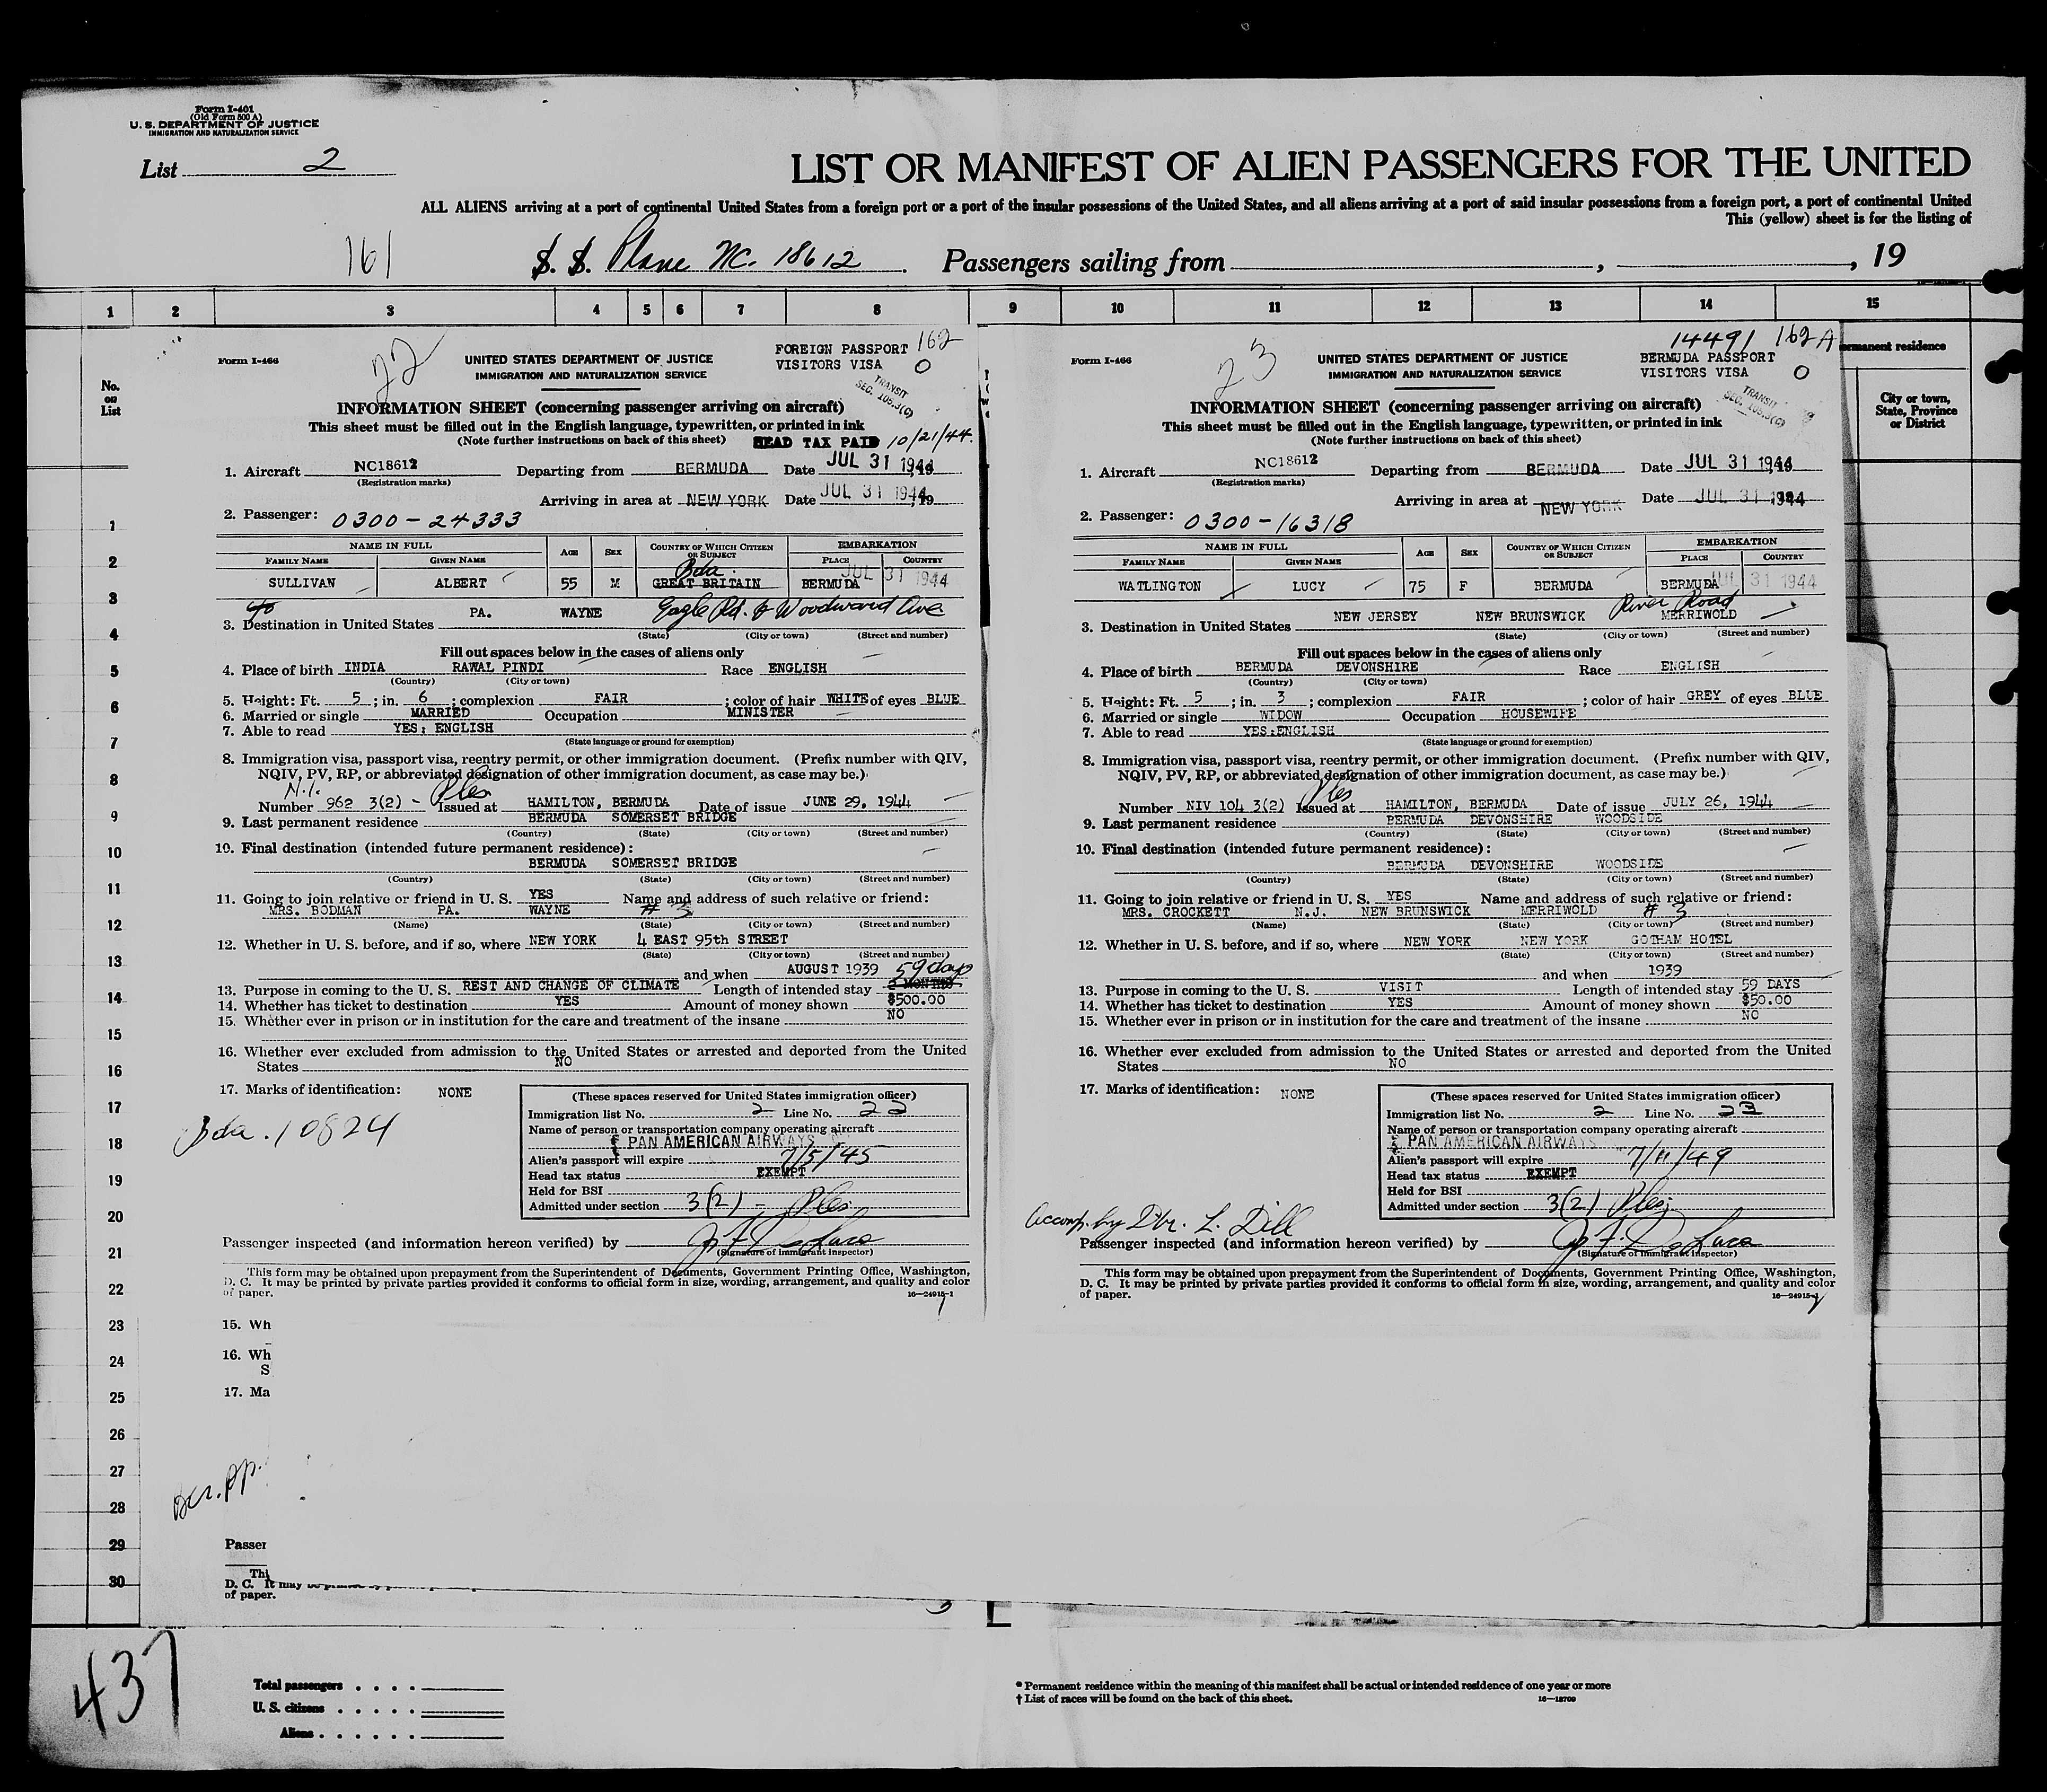 Form I-401
(Old Form 500 A)
U. S. DEPARTMENT OF JUSTICE
IMMIGRATION AND NATURALIZATION SERVICE
List 2
LIST OR MANIFEST OF ALIEN PASSENGERS FOR THE UNITED
ALL ALIENS arriving at a port of continental United States from a foreign port or a port of the insular possessions of the United States, and all aliens arriving at a port of said insular possessions from a foreign port, a port of continental United
This (yellow) sheet is for the listing of
161
S. S. Plane NC. 18612. Passengers sailing from , , 19
1 2 3 4 5 6 7 8 9 10 11 12 13 14 15
No. on List
ermanent residence
City or town, State, Province or District
22
162
Form I-466
UNITED STATES DEPARTMENT OF JUSTICE
IMMIGRATION AND NATURALIZATION SERVICE
FOREIGN PASSPORT
VISITORS VISA O
TRANSIT
SEC. 105.3(C)
INFORMATION SHEET (concerning passenger arriving on aircraft)
This sheet must be filled out in the English language, typewritten, or printed in ink
(Note further instructions on back of this sheet) HEAD TAX PAID 10/21/44.
1. Aircraft NC18612 Departing from BERMUDA Date JUL 31 1944, 19
(Registration marks)
Arriving in area at NEW YORK Date JUL 31 1944, 19
2. Passenger: 0300-24333
NAME IN FULL AGE SEX COUNTRY OF WHICH CITIZEN OR SUBJECT EMBARKATION
FAMILY NAME GIVEN NAME PLACE COUNTRY
Bda.
SULLIVAN ALBERT 55 M GREAT BRITAIN BERMUDA JUL 31 1944
3. Destination in United States PA. WAYNE Eagle Rd. & Woodward Ave
(State) (City or town) (Street and number)
Fill out spaces below in the cases of aliens only
4. Place of birth INDIA RAWAL PINDI Race ENGLISH
(Country) (City or town)
5. Height: Ft. 5 ; in. 6 ; complexion FAIR ; color of hair WHITE of eyes BLUE
6. Married or single MARRIED Occupation MINISTER
7. Able to read YES: ENGLISH
(State language or ground for exemption)
8. Immigration visa, passport visa, reentry permit, or other immigration document. (Prefix number with QIV,
NQIV, PV, RP, or abbreviated designation of other immigration document, as case may be.)
Number 962 3(2) - Issued at HAMILTON, BERMUDA Date of issue JUNE 29, 1944
9. Last permanent residence BERMUDA SOMERSET BRIDGE
(Country) (State) (City or town) (Street and number)
10. Final destination (intended future permanent residence):
BERMUDA SOMERSET BRIDGE
(Country) (State) (City or town) (Street and number)
11. Going to join relative or friend in U. S. YES Name and address of such relative or friend:
MRS. BODMAN PA. WAYNE # 3
(Name) (State) (City or town) (Street and number)
12. Whether in U. S. before, and if so, where NEW YORK 4 EAST 95th STREET
(State) (City or town) (Street and number)
and when AUGUST 1939 59 days
13. Purpose in coming to the U. S. REST AND CHANGE OF CLIMATE Length of intended stay MONTHS
14. Whether has ticket to destination YES Amount of money shown $500.00
15. Whether ever in prison or in institution for the care and treatment of the insane NO
16. Whether ever excluded from admission to the United States or arrested and deported from the United
States NO
17. Marks of identification: NONE
Bda. 10824
(These spaces reserved for United States immigration officer)
Immigration list No. 2 Line No. 22
Name of person or transportation company operating aircraft
PAN AMERICAN AIRWAYS
Alien's passport will expire 7/5/45
Head tax status EXEMPT
Held for BSI
Admitted under section 3(2) -
Passenger inspected (and information hereon verified) by
(Signature of immigrant inspector)
This form may be obtained upon prepayment from the Superintendent of Documents, Government Printing Office, Washington,
D. C. It may be printed by private parties provided it conforms to official form in size, wording, arrangement, and quality and color
of paper.
16—24915-1
23
14491 162 A
Form I-466
UNITED STATES DEPARTMENT OF JUSTICE
IMMIGRATION AND NATURALIZATION SERVICE
BERMUDA PASSPORT
VISITORS VISA O
TRANSIT
SEC. 105.3(C)
INFORMATION SHEET (concerning passenger arriving on aircraft)
This sheet must be filled out in the English language, typewritten, or printed in ink
(Note further instructions on back of this sheet)
1. Aircraft NC18612 Departing from BERMUDA Date JUL 31 1944
(Registration marks)
Arriving in area at NEW YORK Date JUL 31 1944
2. Passenger: 0300-16318
NAME IN FULL AGE SEX COUNTRY OF WHICH CITIZEN OR SUBJECT EMBARKATION
FAMILY NAME GIVEN NAME PLACE COUNTRY
WATLINGTON LUCY 75 F BERMUDA BERMUDA JUL 31 1944
River Road
3. Destination in United States NEW JERSEY NEW BRUNSWICK MERRIWOLD
(State) (City or town) (Street and number)
Fill out spaces below in the cases of aliens only
4. Place of birth BERMUDA DEVONSHIRE Race ENGLISH
(Country) (City or town)
5. Height: Ft. 5 ; in. 3 ; complexion FAIR ; color of hair GREY of eyes BLUE
6. Married or single WIDOW Occupation HOUSEWIFE
7. Able to read YES:ENGLISH
(State language or ground for exemption)
8. Immigration visa, passport visa, reentry permit, or other immigration document. (Prefix number with QIV,
NQIV, PV, RP, or abbreviated designation of other immigration document, as case may be.)
Number NIV 104 3(2) Issued at HAMILTON, BERMUDA Date of issue JULY 26, 1944
9. Last permanent residence BERMUDA DEVONSHIRE WOODSIDE
(Country) (State) (City or town) (Street and number)
10. Final destination (intended future permanent residence):
BERMUDA DEVONSHIRE WOODSIDE
(Country) (State) (City or town) (Street and number)
11. Going to join relative or friend in U. S. YES Name and address of such relative or friend:
MRS. CROCKETT N.J. NEW BRUNSWICK MERRIWOLD # 3
(Name) (State) (City or town) (Street and number)
12. Whether in U. S. before, and if so, where NEW YORK NEW YORK GOTHAM HOTEL
(State) (City or town) (Street and number)
and when 1939
13. Purpose in coming to the U. S. VISIT Length of intended stay 59 DAYS
14. Whether has ticket to destination YES Amount of money shown $50.00
15. Whether ever in prison or in institution for the care and treatment of the insane NO
16. Whether ever excluded from admission to the United States or arrested and deported from the United
States NO
17. Marks of identification: NONE
(These spaces reserved for United States immigration officer)
Immigration list No. 2 Line No. 23
Name of person or transportation company operating aircraft
PAN AMERICAN AIRWAYS
Alien's passport will expire 7/11/49
Head tax status EXEMPT
Held for BSI
Admitted under section 3(2)
Accomp. by Dtr. L. Dill
Passenger inspected (and information hereon verified) by
(Signature of immigrant inspector)
This form may be obtained upon prepayment from the Superintendent of Documents, Government Printing Office, Washington,
D. C. It may be printed by private parties provided it conforms to official form in size, wording, arrangement, and quality and color
of paper.
16—24915-1
1
2
3
4
5
6
7
8
9
10
11
12
13
14
15
16
17
18
19
20
21
22
23
24
25
26
27
28
29
30
15. Wh
16. Wh
S
17. Ma
Passer
Thi
D. C. It may be
of paper.
437
Total passengers
U. S. citizens
Aliens
* Permanent residence within the meaning of this manifest shall be actual or intended residence of one year or more
† List of races will be found on the back of this sheet.
16—18709